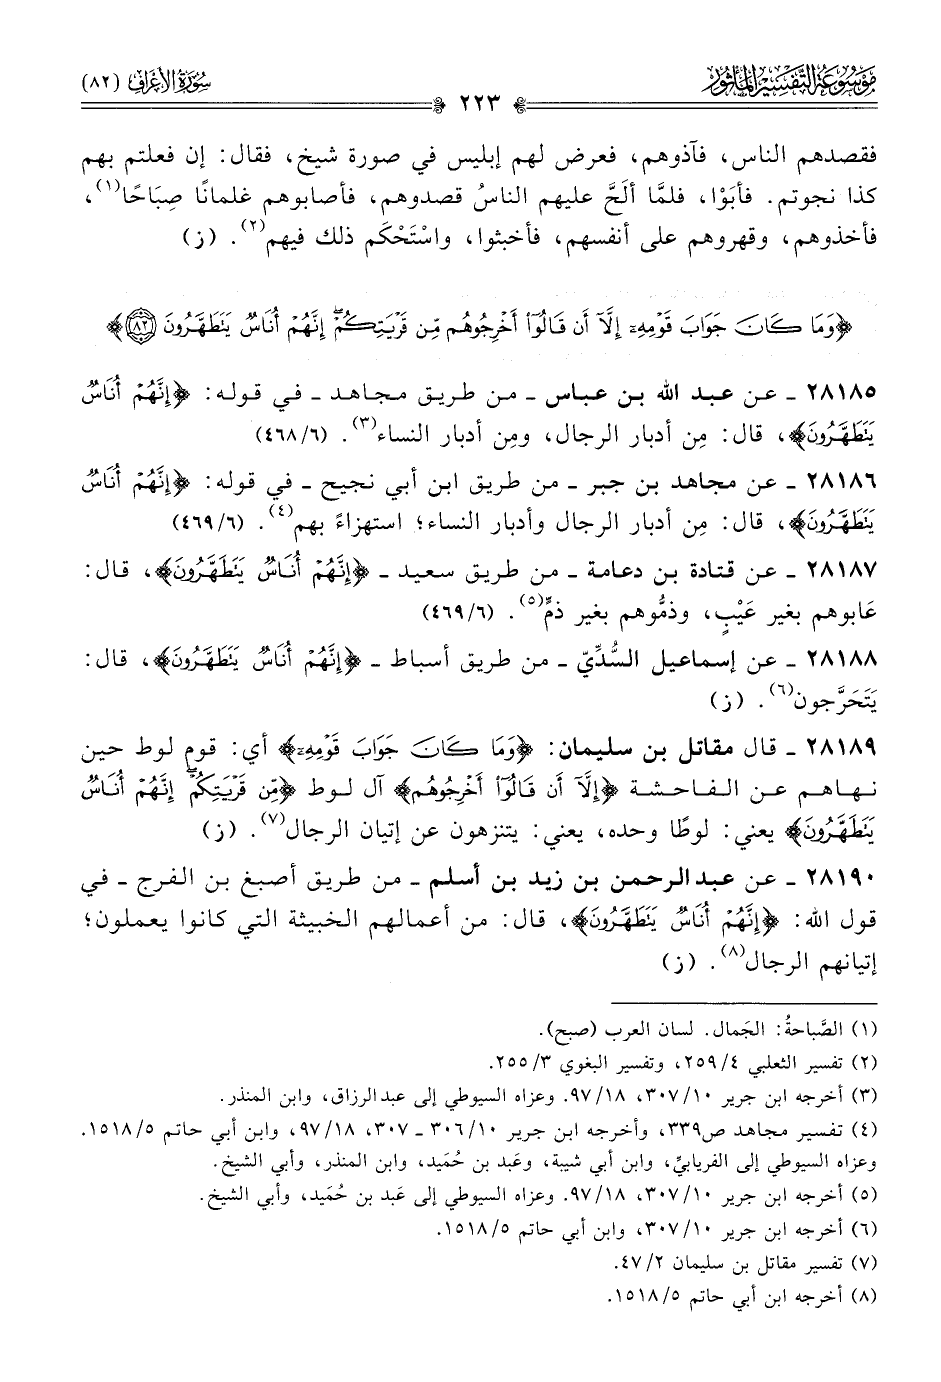 موسوعة التفسير المأثور
سورة الأعراف (٨٢)
٢٢٣
فقصدهم الناس، فآذوهم، فعرض لهم إبليس في صورة شيخ، فقال: إن فعلتم بهم
كذا نجوتم. فأبَوْا، فلمَّا ألَحَّ عليهم الناسُ قصدوهم، فأصابوهم غلمانًا صِبَاحًا(١)،
فأخذوهم، وقهروهم على أنفسهم، فأخبثوا، واسْتَحْكَم ذلك فيهم(٢). (ز)
﴿وَمَا كَانَ جَوَابَ قَوْمِهِۦٓ إِلَّآ أَن قَالُوٓا۟ أَخْرِجُوهُم مِّن قَرْيَتِكُمْ ۖ إِنَّهُمْ أُنَاسٌ يَتَطَهَّرُونَ ٨٢﴾
٢٨١٨٥ ـ عن عبد الله بن عباس ـ من طريق مجاهد ـ في قوله: ﴿إِنَّهُمْ أُنَاسٌ
يَتَطَهَّرُونَ﴾، قال: مِن أدبار الرجال، ومِن أدبار النساء(٣). (٤٦٨/٦)
٢٨١٨٦ ـ عن مجاهد بن جبر ـ من طريق ابن أبي نجيح ـ في قوله: ﴿إِنَّهُمْ أُنَاسٌ
يَتَطَهَّرُونَ﴾، قال: مِن أدبار الرجال وأدبار النساء؛ استهزاءً بهم(٤). (٤٦٩/٦)
٢٨١٨٧ ـ عن قتادة بن دعامة ـ من طريق سعيد ـ ﴿إِنَّهُمْ أُنَاسٌ يَتَطَهَّرُونَ﴾، قال:
عَابوهم بغير عَيْبٍ، وذمُّوهم بغير ذمٍّ(٥). (٤٦٩/٦)
٢٨١٨٨ ـ عن إسماعيل السُّدِّيّ ـ من طريق أسباط ـ ﴿إِنَّهُمْ أُنَاسٌ يَتَطَهَّرُونَ﴾، قال:
يَتَحَرَّجون(٦). (ز)
٢٨١٨٩ ـ قال مقاتل بن سليمان: ﴿وَمَا كَانَ جَوَابَ قَوْمِهِۦٓ﴾ أي: قوم لوط حين
نهاهم عن الفاحشة ﴿إِلَّآ أَن قَالُوٓا۟ أَخْرِجُوهُم﴾ آل لوط ﴿مِّن قَرْيَتِكُمْ ۖ إِنَّهُمْ أُنَاسٌ
يَتَطَهَّرُونَ﴾ يعني: لوطًا وحده، يعني: يتنزهون عن إتيان الرجال(٧). (ز)
٢٨١٩٠ ـ عن عبدالرحمن بن زيد بن أسلم ـ من طريق أصبغ بن الفرج ـ في
قول الله: ﴿إِنَّهُمْ أُنَاسٌ يَتَطَهَّرُونَ﴾، قال: من أعمالهم الخبيثة التي كانوا يعملون؛
إتيانهم الرجال(٨). (ز)
(١) الصَّباحةُ: الجَمال. لسان العرب (صبح).
(٢) تفسير الثعلبي ٢٥٩/٤، وتفسير البغوي ٢٥٥/٣.
(٣) أخرجه ابن جرير ٣٠٧/١٠، ٩٧/١٨. وعزاه السيوطي إلى عبدالرزاق، وابن المنذر.
(٤) تفسير مجاهد ص٣٣٩، وأخرجه ابن جرير ٣٠٦/١٠ ـ ٣٠٧، ٩٧/١٨، وابن أبي حاتم ١٥١٨/٥.
وعزاه السيوطي إلى الفريابيِّ، وابن أبي شيبة، وعَبد بن حُمَيد، وابن المنذر، وأبي الشيخ.
(٥) أخرجه ابن جرير ٣٠٧/١٠، ٩٧/١٨. وعزاه السيوطي إلى عَبد بن حُمَيد، وأبي الشيخ.
(٦) أخرجه ابن جرير ٣٠٧/١٠، وابن أبي حاتم ١٥١٨/٥.
(٧) تفسير مقاتل بن سليمان ٤٧/٢.
(٨) أخرجه ابن أبي حاتم ١٥١٨/٥.